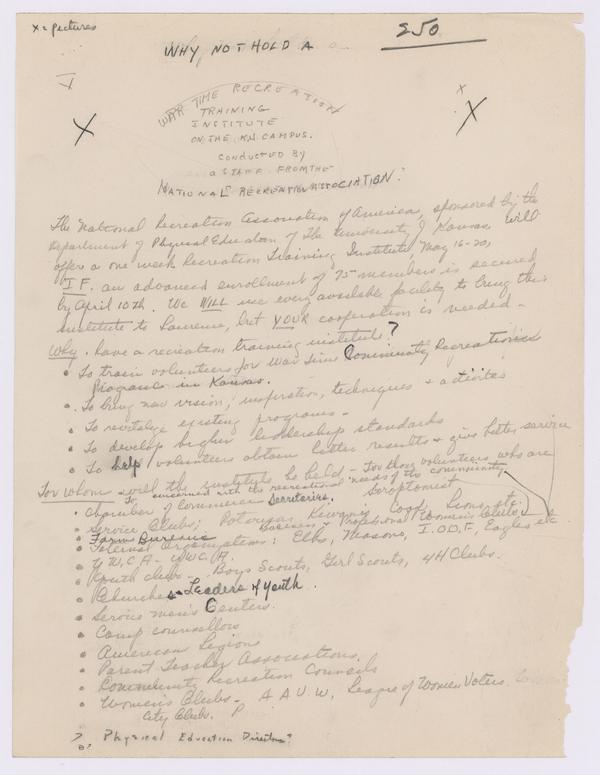 x = pictures
250
WHY, NOT HOLD A
WAR TIME RECREATION
TRAINING
INSTITUTE
ON THE K.U. CAMPUS.
CONDUCTED BY
A STAFF FROM THE
NATIONAL RECREATION ASSOCIATION?
The National Recreation Association of America, sponsored by the
Department of Physical Education of The University of Kansas will
offer a one week Recreation Training Institute May 16-20,
IF. an advanced enrollment of 75 members is secured
by April 10th. We WILL use every available facility to bring the
institute to Lawrence, but YOUR cooperation is needed -
Why. have a recreation training institute?
• To train volunteers for War time Community Recreation
Programs in Kansas.
• To bring new vision, inspiration, techniques + activities
• To revitalize existing programs -
• To develop higher leadership standards
• To help volunteers obtain better results + give better service
For whom will the institute be held - For those volunteers who are
concerned with the recreational needs of the community
• Chamber of Commerce Secretaries. Soroptomist
• Service Clubs; Rotarian, Kiwanis, Coop, Lions, etc.
Business + Professional Women's Clubs
• Farm Bureaus
• Fraternal Organizations: Elks, Masons, I.O.O.F., Eagles etc
• Y.M.C.A - Y.W.C.A.
• Youth clubs - Boys Scouts, Girl Scouts, 4H Clubs.
• Churches + Leaders of Youth.
• Service men's Centers.
• Camp counsellors
• American Legion
• Parent Teacher Associations.
• Community Recreation Councils
• Women's Clubs - A A U W, League of Women Voters.
City Clubs. P
? Physical Education Directors?